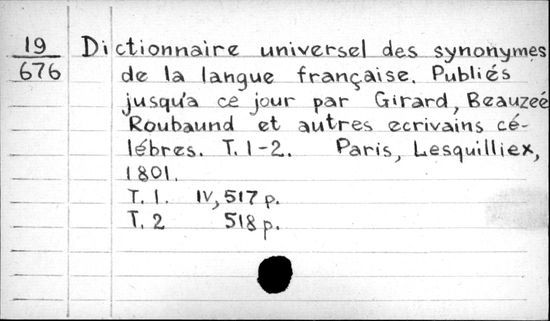 19
676
Dictionnaire universel des synonymes
de la langue française. Publiés
jusqu'a ce jour par Girard, Beauzeé
Roubaund et autres ecrivains cé-
lébres. T. 1-2. Paris, Lesquilliex,
1801.
T. 1. IV, 517 p.
T. 2 518 p.